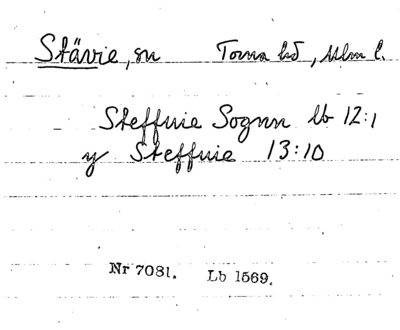 Stävie, sn Torna hd, Mlm l.
Steffuie Sognn lb 12:1
y Steffuie 13:10
Nr 7081. Lb 1569.